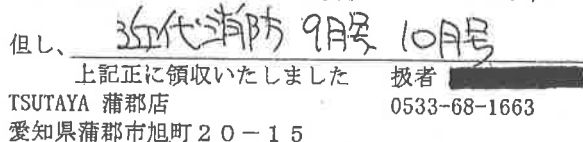 但し、近代消防 9月号 10月号
上記正に領収いたしました 扱者
TSUTAYA 蒲郡店 0533-68-1663
愛知県蒲郡市旭町20-15